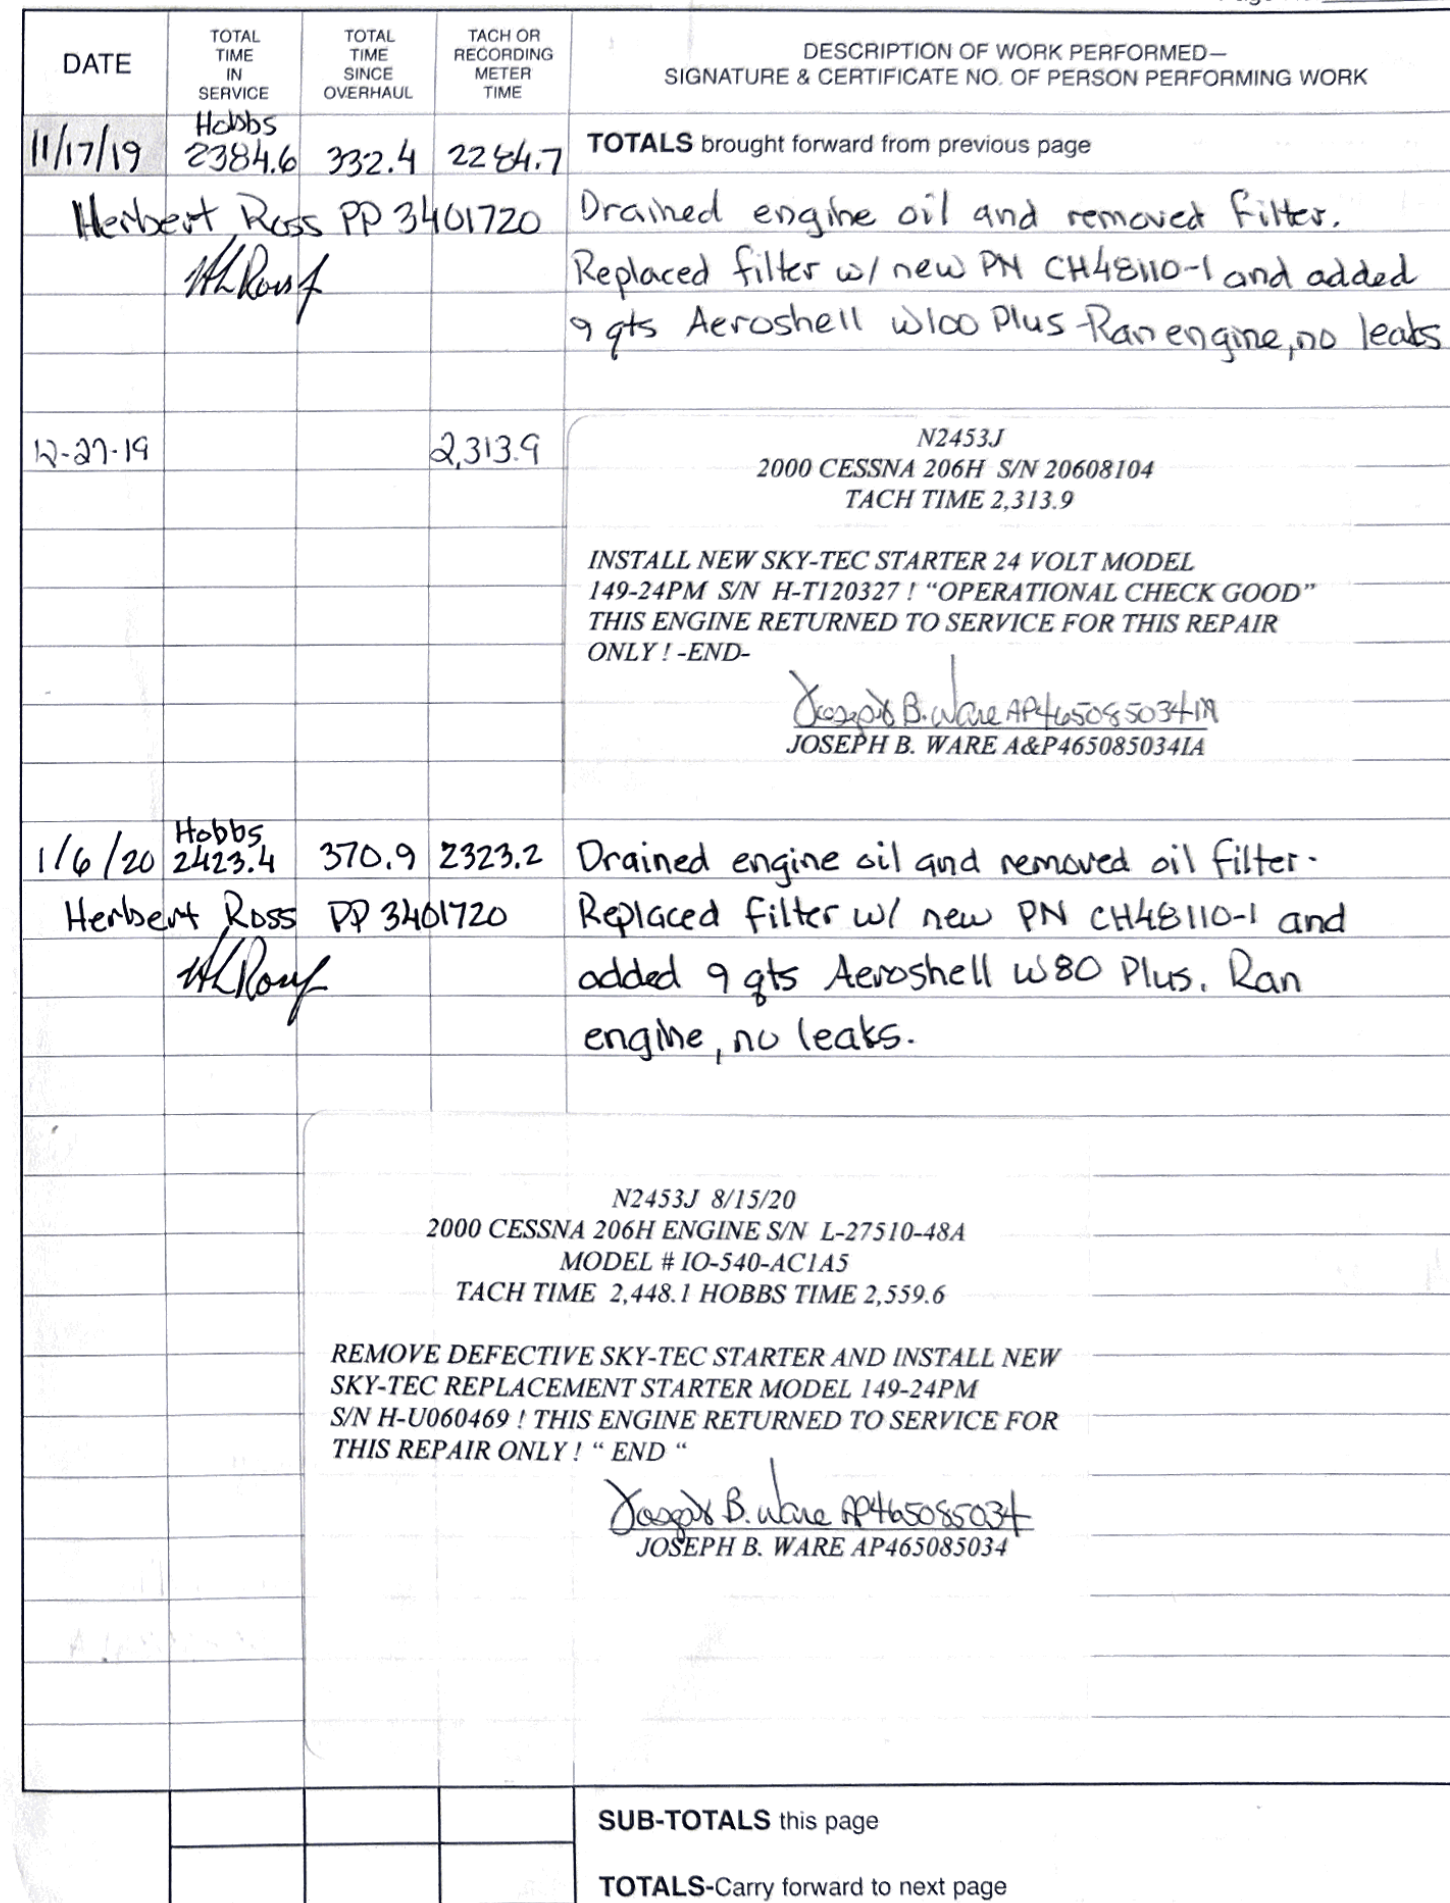 DATE
TOTAL
TIME
IN
SERVICE
TOTAL
TIME
SINCE
OVERHAUL
TACH OR
RECORDING
METER
TIME
DESCRIPTION OF WORK PERFORMED—
SIGNATURE & CERTIFICATE NO. OF PERSON PERFORMING WORK
Hobbs
11/17/19 2384.6 332.4 2284.7 TOTALS brought forward from previous page
Herbert Ross PP 3401720 Drained engine oil and removed filter.
Replaced filter w/ new PN CH48110-1 and added
9 qts Aeroshell W100 Plus Ran engine, no leaks
12-27-19 2,313.9
N2453J
2000 CESSNA 206H S/N 20608104
TACH TIME 2,313.9
INSTALL NEW SKY-TEC STARTER 24 VOLT MODEL
149-24PM S/N H-T120327 ! "OPERATIONAL CHECK GOOD"
THIS ENGINE RETURNED TO SERVICE FOR THIS REPAIR
ONLY ! -END-
Joseph B. Ware AP465085034IA
JOSEPH B. WARE A&P465085034IA
Hobbs
1/6/20 2423.4 370.9 2323.2 Drained engine oil and removed oil filter.
Herbert Ross PP 3401720 Replaced filter w/ new PN CH48110-1 and
added 9 qts Aeroshell W80 Plus. Ran
engine, no leaks.
N2453J 8/15/20
2000 CESSNA 206H ENGINE S/N L-27510-48A
MODEL # IO-540-AC1A5
TACH TIME 2,448.1 HOBBS TIME 2,559.6
REMOVE DEFECTIVE SKY-TEC STARTER AND INSTALL NEW
SKY-TEC REPLACEMENT STARTER MODEL 149-24PM
S/N H-U060469 ! THIS ENGINE RETURNED TO SERVICE FOR
THIS REPAIR ONLY ! " END "
Joseph B. Ware AP465085034
JOSEPH B. WARE AP465085034
SUB-TOTALS this page
TOTALS-Carry forward to next page